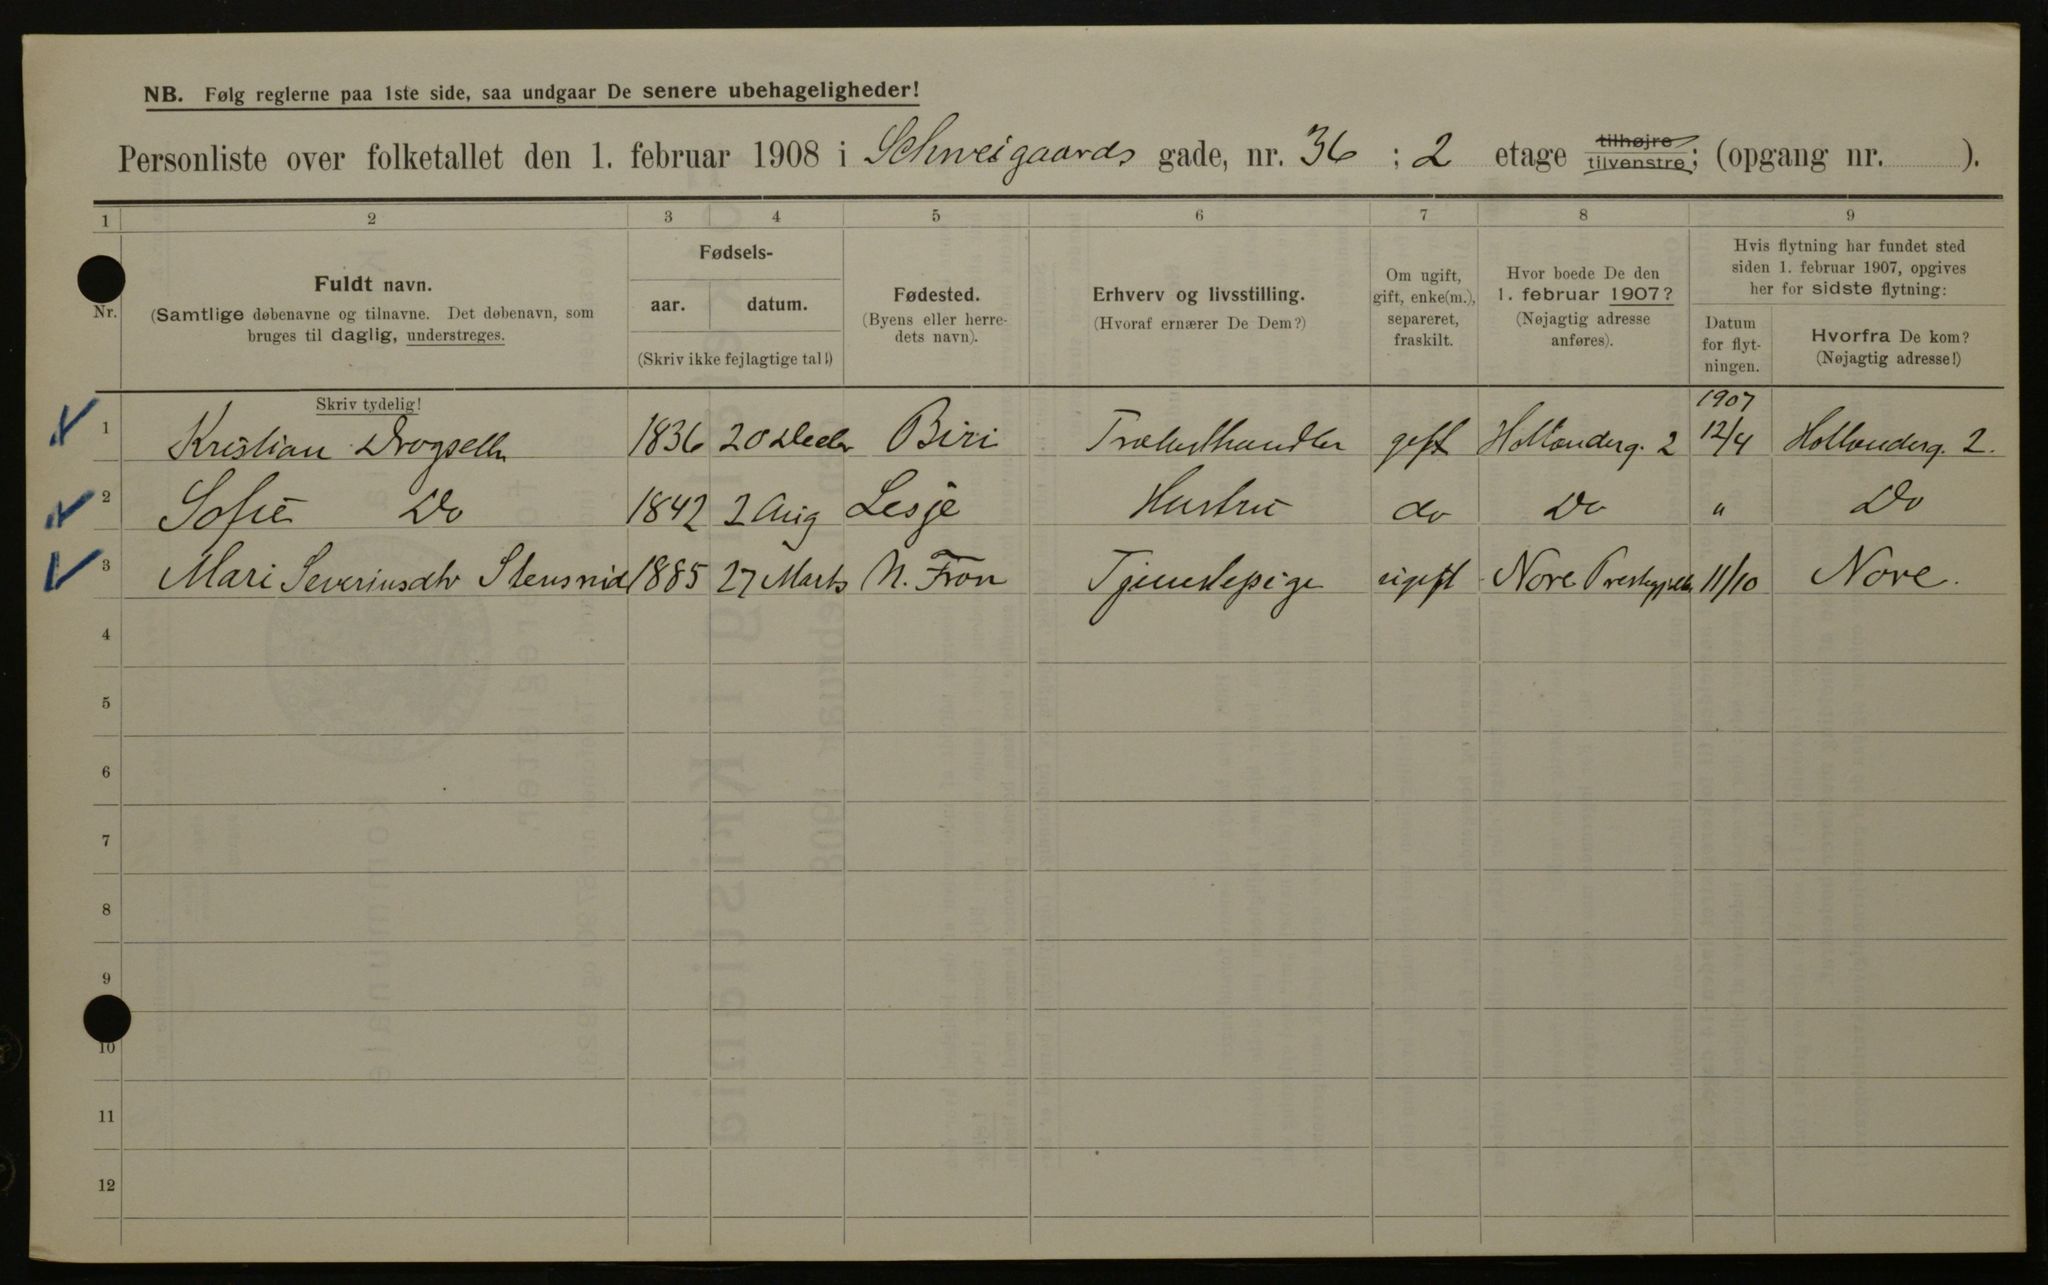 NB. Følg reglerne paa 1ste side, saa undgaar De senere ubehageligheder!
Personliste over folketallet den 1. februar 1908 i Schweigaards gade, nr. 36 ; 2 etage tilhøjre tilvenstre; (opgang nr. ).
1 2 3 4 5 6 7 8 9
Nr.
Fuldt navn.
(Samtlige døbenavne og tilnavne. Det døbenavn, som
bruges til daglig, understreges.
Skriv tydelig!
Fødsels-
aar. datum.
(Skriv ikke fejlagtige tal!)
Fødested.
(Byens eller herre-
dets navn).
Erhverv og livsstilling.
(Hvoraf ernærer De Dem?)
Om ugift,
gift, enke(m.),
separeret,
fraskilt.
Hvor boede De den
1. februar 1907?
(Nøjagtig adresse
anføres).
Hvis flytning har fundet sted
siden 1. februar 1907, opgives
her for sidste flytning:
Datum
for flyt-
ningen.
Hvorfra De kom?
(Nøjagtig adresse!)
1907
1 Kristian 1836 20 Biri gift Hollenderg. 2 12/4 Hollenderg. 2.
2 Sofie Do 1842 2 Aug Lesje Hustru do Do " Do
3 Mari Severinsdtr 1885 27 Marts N. Fron Tjenestepige ugift Nore 11/10 Nore.
4
5
6
7
8
9
10
11
12